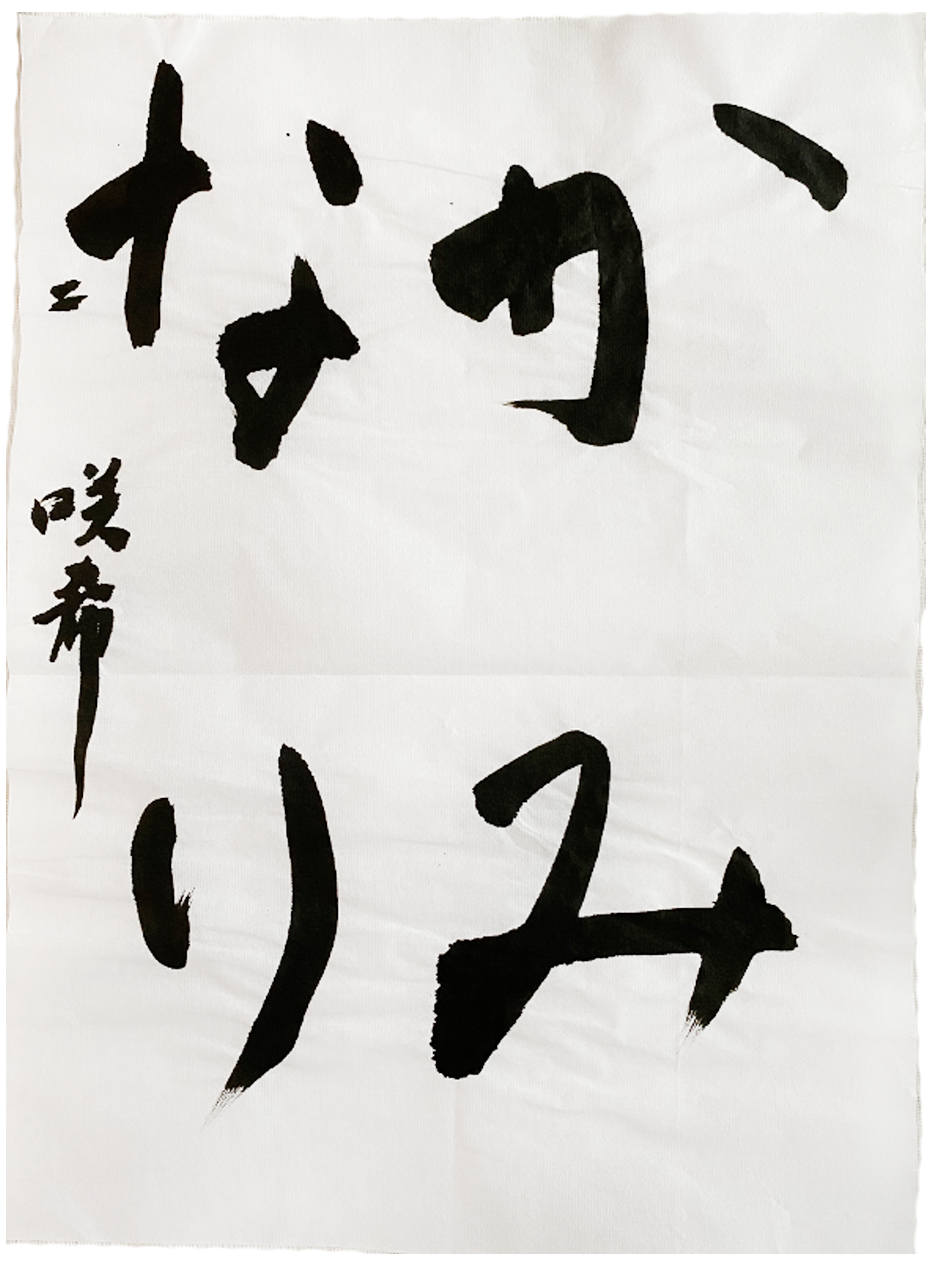 かみ
なり
二 咲希